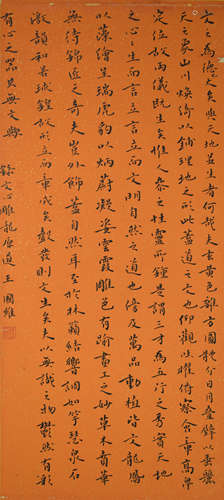 文之為德也大矣與天地並生者何哉夫玄黃色雜方圓體分日月疊璧以垂麗
天之象山川煥綺以鋪理地之形此蓋道之文也仰觀吐曜俯察含章高卑
定位故兩儀既生矣惟人參之性靈所鍾是謂三才為五行之秀實天地
之心心生而言立言立而文明自然之道也傍及萬品動植皆文龍鳳
以藻繪呈瑞虎豹以炳蔚凝姿雲霞雕色有踰畫工之妙草木賁華
無待錦匠之奇夫豈外飾蓋自然耳至於林籟結響調如竽瑟泉石
激韻和若球鍠故形立而章成矣聲發則文生矣夫以無識之物鬱然有彩
有心之器其無文歟
錄文心雕龍原道 王國維